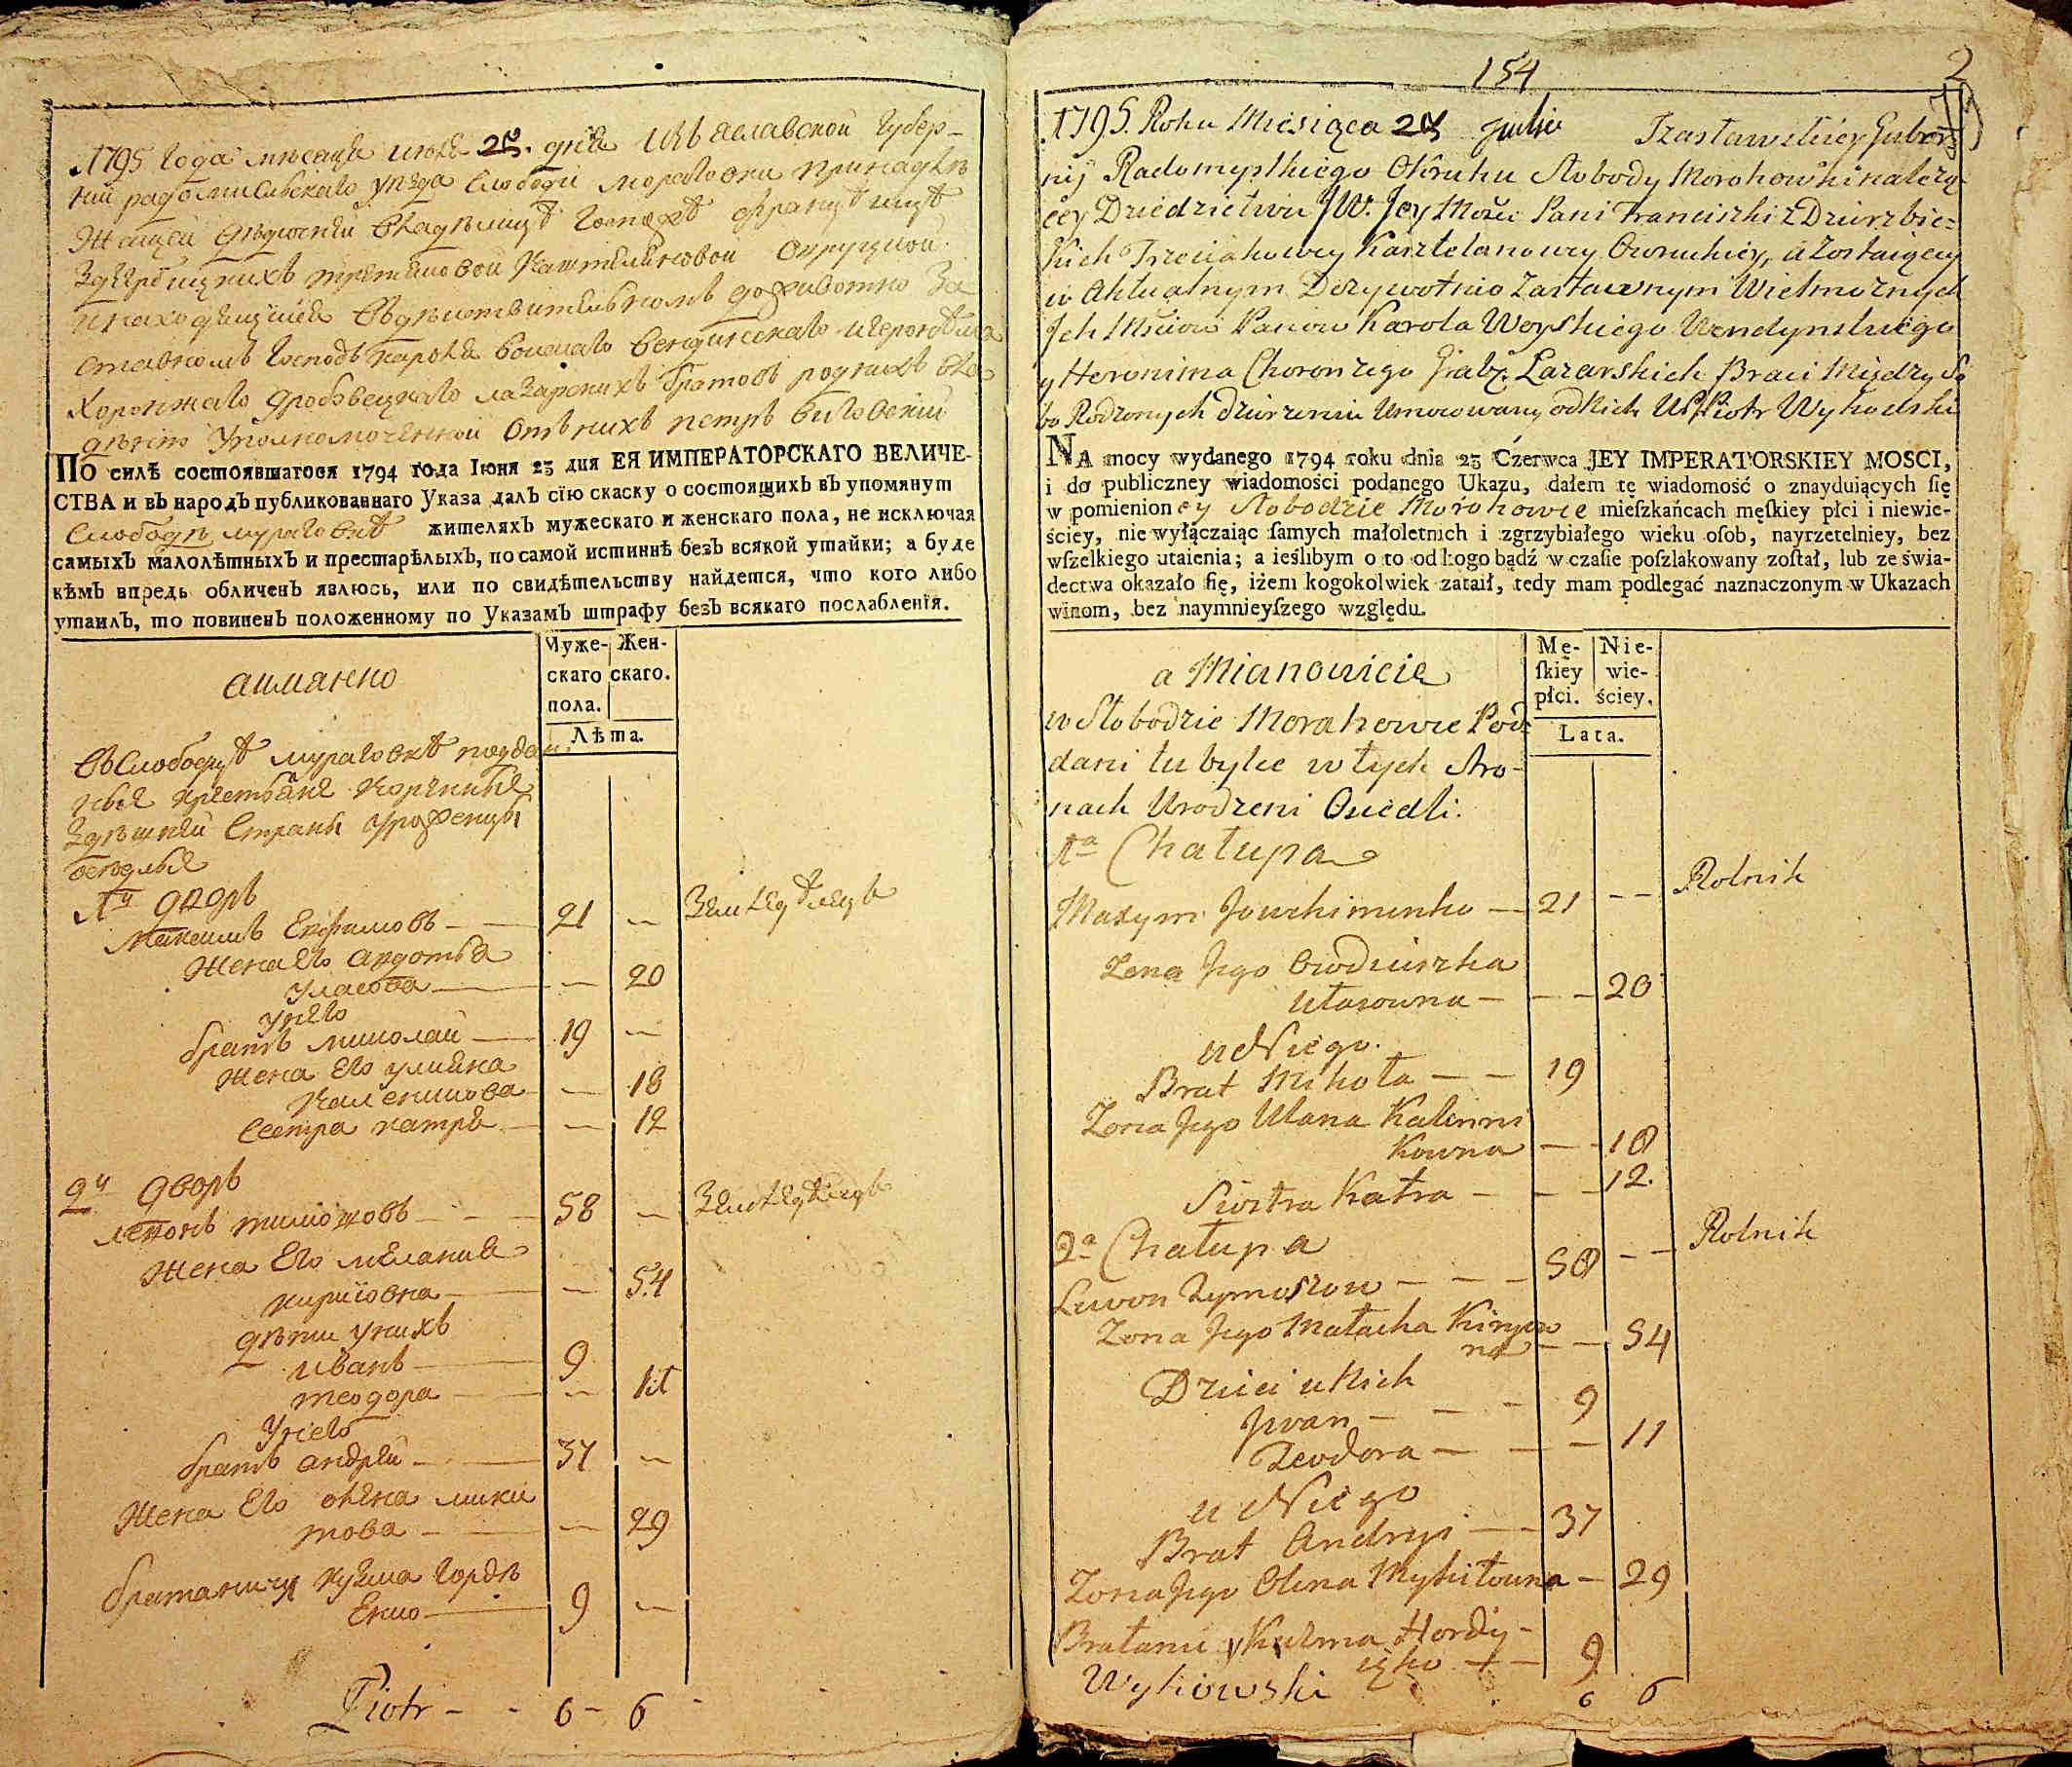 1795 года мѣсяца июля 25 дня Изъяславской губер-
нии радомисльского уѣзда слободи мораговки принадлѣ
жащей дѣдичней владѣлицѣ госпожѣ францѣшцѣ
ставномъ господъ кароля войскаго вендинскаго и героніма
Хоронжаго лазарскихъ братовъ родныхъ
уполномоченной отъ нихъ петръ виговский
ПО силѣ состоявшагося 1794 года Іюня 23 дня ЕЯ ИМПЕРАТОРСКАГО ВЕЛИЧЕ-
СТВА и въ народъ публикованнаго Указа далъ сїю скаску о состоящихъ въ упомянут
слободѣ мураговкѣ жителяхъ мужескаго и женскаго пола, не исключая
самыхъ малолѣтныхъ и престарѣлыхъ, по самой истиннѣ безъ всякой утайки; а буде
кѣмъ впредь обличенъ явлюсь, или по свидѣтельству найдется, что кого либо
утаилъ, то повиненъ положенному по Указамъ штрафу безъ всякаго послабленїя.
Муже- Жен-
скаго скаго.
пола.
Лѣта.
аимянно
въ слободѣ мураговкѣ поддан
ныя крестьяне коренные
здѣшней страны уроженцы
оседлые
1й дворъ
Максимъ Ефимовъ — 21 — Земледѣлецъ
жена его авдотья
уласова — — 20
у него
братъ миколай — 19 —
жена его улияна
каленикова — — 18
сестра катря — — 12
2й дворъ
левонъ тимошовъ — 58 — Земледѣлецъ
жена его мелания
кириовна — — 54
дѣти у нихъ
иванъ — 9
теодора — — 11
у него
братъ андрей — 37 —
жена его олена мики
това — — 29
братаничъ кузма гордѣ
енко — 9 —
Piotr - - 6 - 6
154
2
1795. Roku Miesiąca 25 Julii Izasławskiey Guber-
nij Radomyslkiego Okruhu Słobody Morohowki należą-
cey Dziedzictwu JW. Jey Mości Pani Franciszki z Dzierzbic-
kich Trzeciakowey Kasztelanowey Owruckiey, a zostaiącey
w Aktualnym Dożywotnio Zastawnym Wielmożnych
Ich Mściow Panow Karola Woyskiego Wendynskiego
y Heronima Chorążego Grabż. Łazarskich Braci Między So
bo Rodzonych dzierzeniu Umocowany od Nich UJP Piotr Wykowski
NA mocy wydanego 1794 roku dnia 23 Czerwca JEY IMPERATORSKIEY MOSCI,
i do publiczney wiadomości podanego Ukazu, dałem tę wiadomość o znayduiących ſię
w pomienioney Słobodzie Morohowie mieſzkańcach męſkiey płci i niewie-
ściey, nie wyłączaiąc ſamych małoletnich i zgrzybiałego wieku oſob, nayrzetelniey, bez
wſzelkiego utaienia; a ieślibym o to od kogo bądź w czaſie poſzlakowany zoſtał, lub ze świa-
dectwa okazało ſię, iżem kogokolwiek zataił, tedy mam podlegać naznaczonym w Ukazach
winom, bez naymnieyſzego względu.
Mę- Nie-
ſkiey wie-
płci. ściey.
Lata.
a Mianowicie
w Słobodzie Morahowie Pod-
dani tubylce w tych Stro-
nach Urodzeni Osiedli.
1a Chałupa
Maxym Jowchimenko — 21 - - Rolnik
Zona Jego Owdiuszka
Ułasowna — - - 20
u Niego.
Brat Mikoła — — 19
Zona Jego Ulana Kalenni
kowna — - 18
Siostra Katra — - - 12.
2a Chałupa
Lewon Tymoszow - - - 58 - - Rolnik
Zona Jego Małacha Kiryow
na — — 54
Dzieci u Nich
Jwan - - - 9
Teodora — — — 11
u Niego
Brat Andryi — 37
Zona Jego Olena Mykitowna — 29
Bratanic Kuźma Hordy-
eiko — — 9
Wykowski 6 6